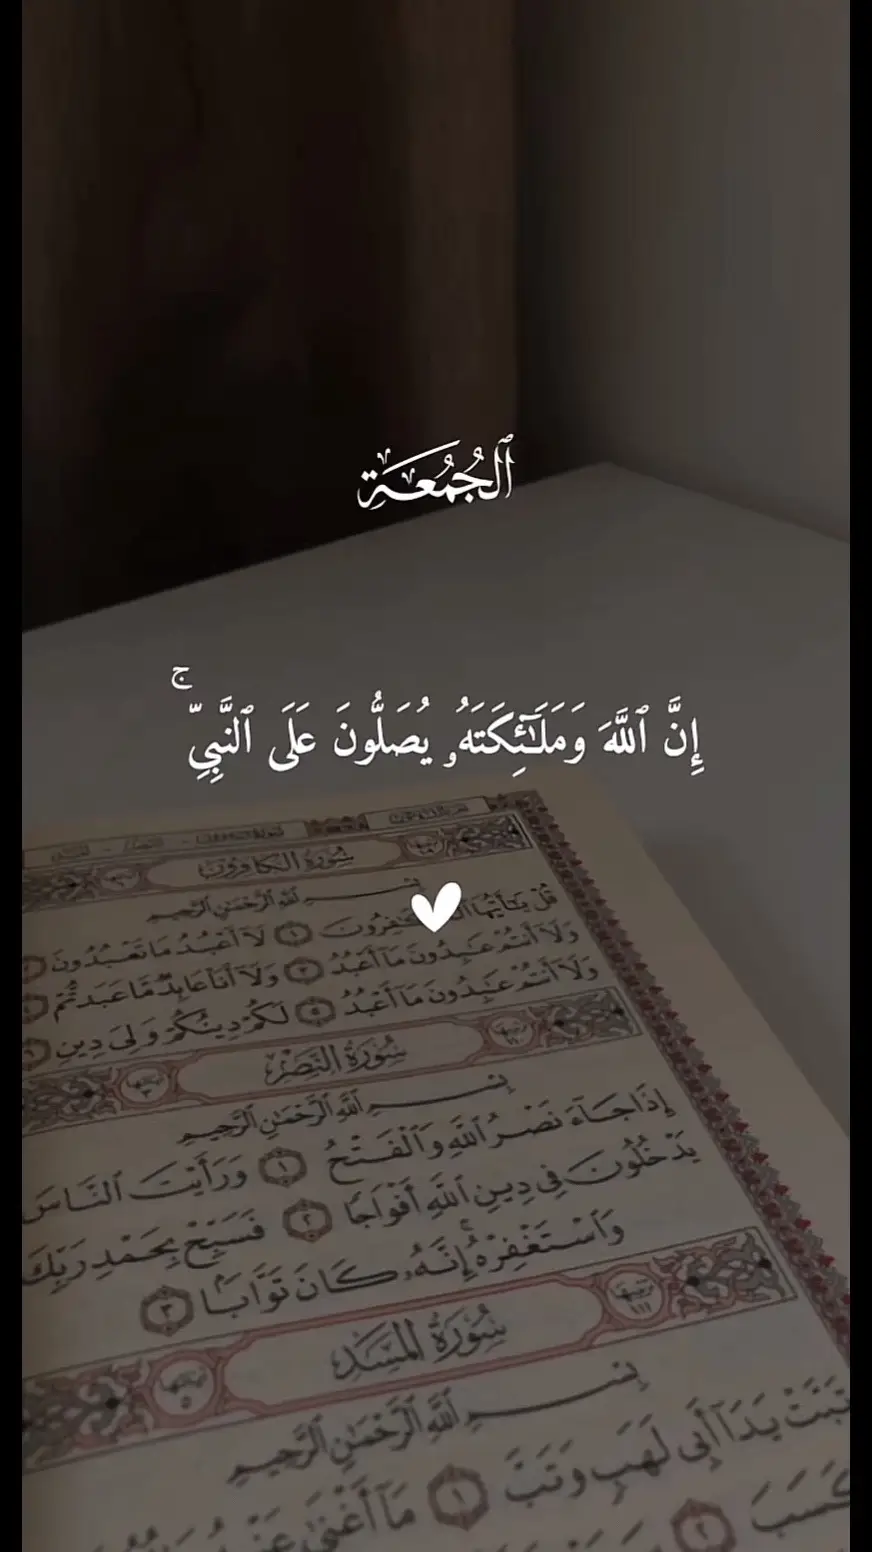 ٱلْجُمُعَةِ
إِنَّ ٱللَّهَ وَمَلَـٰٓئِكَتَهُۥ يُصَلُّونَ عَلَى ٱلنَّبِىِّ ۚ
سُورَةُ الكَافِرُونَ
بِسْمِ اللَّهِ الرَّحْمَٰنِ الرَّحِيمِ
قُلْ يَٰٓأَيُّهَا ١ لَآ أَعْبُدُ مَا تَعْبُدُونَ
وَلَآ أَنتُمْ عَٰبِدُونَ مَآ أَعْبُدُ ٣ وَلَآ أَنَا۠ عَابِدٌ مَّا عَبَدتُّمْ
وَلَآ أَنتُمْ عَٰبِدُونَ مَآ أَعْبُدُ ٥ لَكُمْ دِينُكُمْ وَلِيَ دِينِ
سُورَةُ النَّصْرِ
بِسْمِ اللَّهِ الرَّحْمَٰنِ الرَّحِيمِ
إِذَا جَآءَ نَصْرُ اللَّهِ وَالْفَتْحُ ١ وَرَأَيْتَ النَّاسَ
يَدْخُلُونَ فِي دِينِ اللَّهِ أَفْوَاجًا ٢ فَسَبِّحْ بِحَمْدِ رَبِّكَ
وَاسْتَغْفِرْهُ ۚ إِنَّهُۥ كَانَ تَوَّابًۢا ٣
سُورَةُ المَسَدِ ترتيبها ١١١
بِسْمِ اللَّهِ الرَّحْمَٰنِ الرَّحِيمِ
تَبَّتْ يَدَآ أَبِي لَهَبٍ وَتَبَّ ١ مَآ أَغْنَىٰ
كَسَبَ ٢